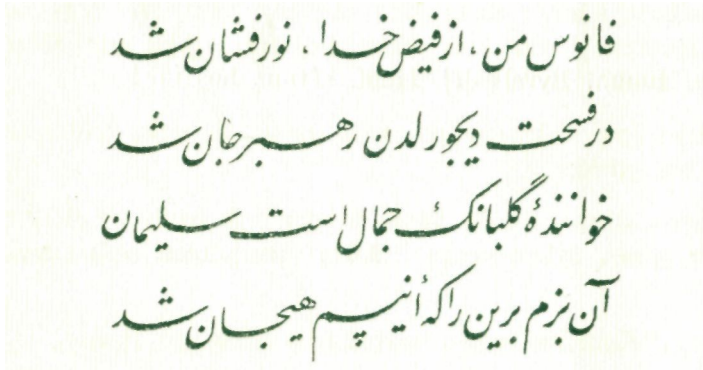 فانوس من، از فیض خدا، نور فشان شد
در فسحت دیجور لدن رهبر جان شد
خوانندهٔ گلبانگ جمال است سلیمان
آن بزم برین را که أنیسم هیجان شد